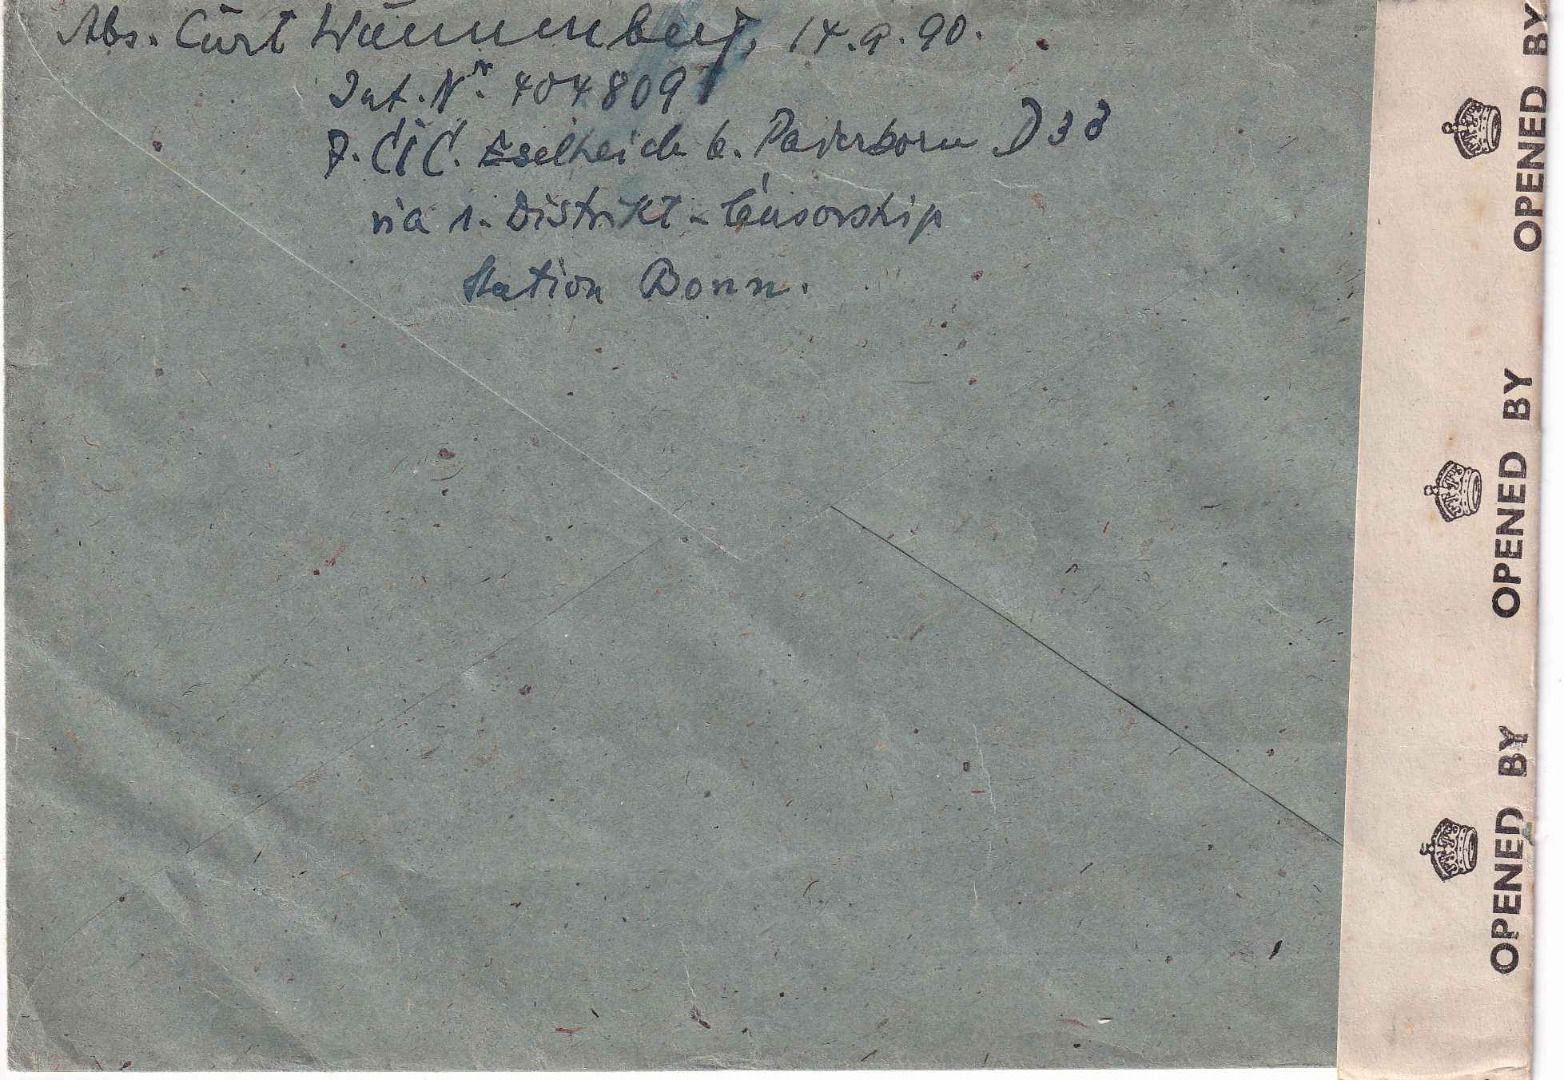 Abs. Curt Wünnenberg, 14.9.90.
Int. Nr. 404809
7. CIC. Eselheide b. Paderborn D33
via 1. Distrikt-Censorship
Station Bonn.
OPENED BY
OPENED BY
OPENED BY